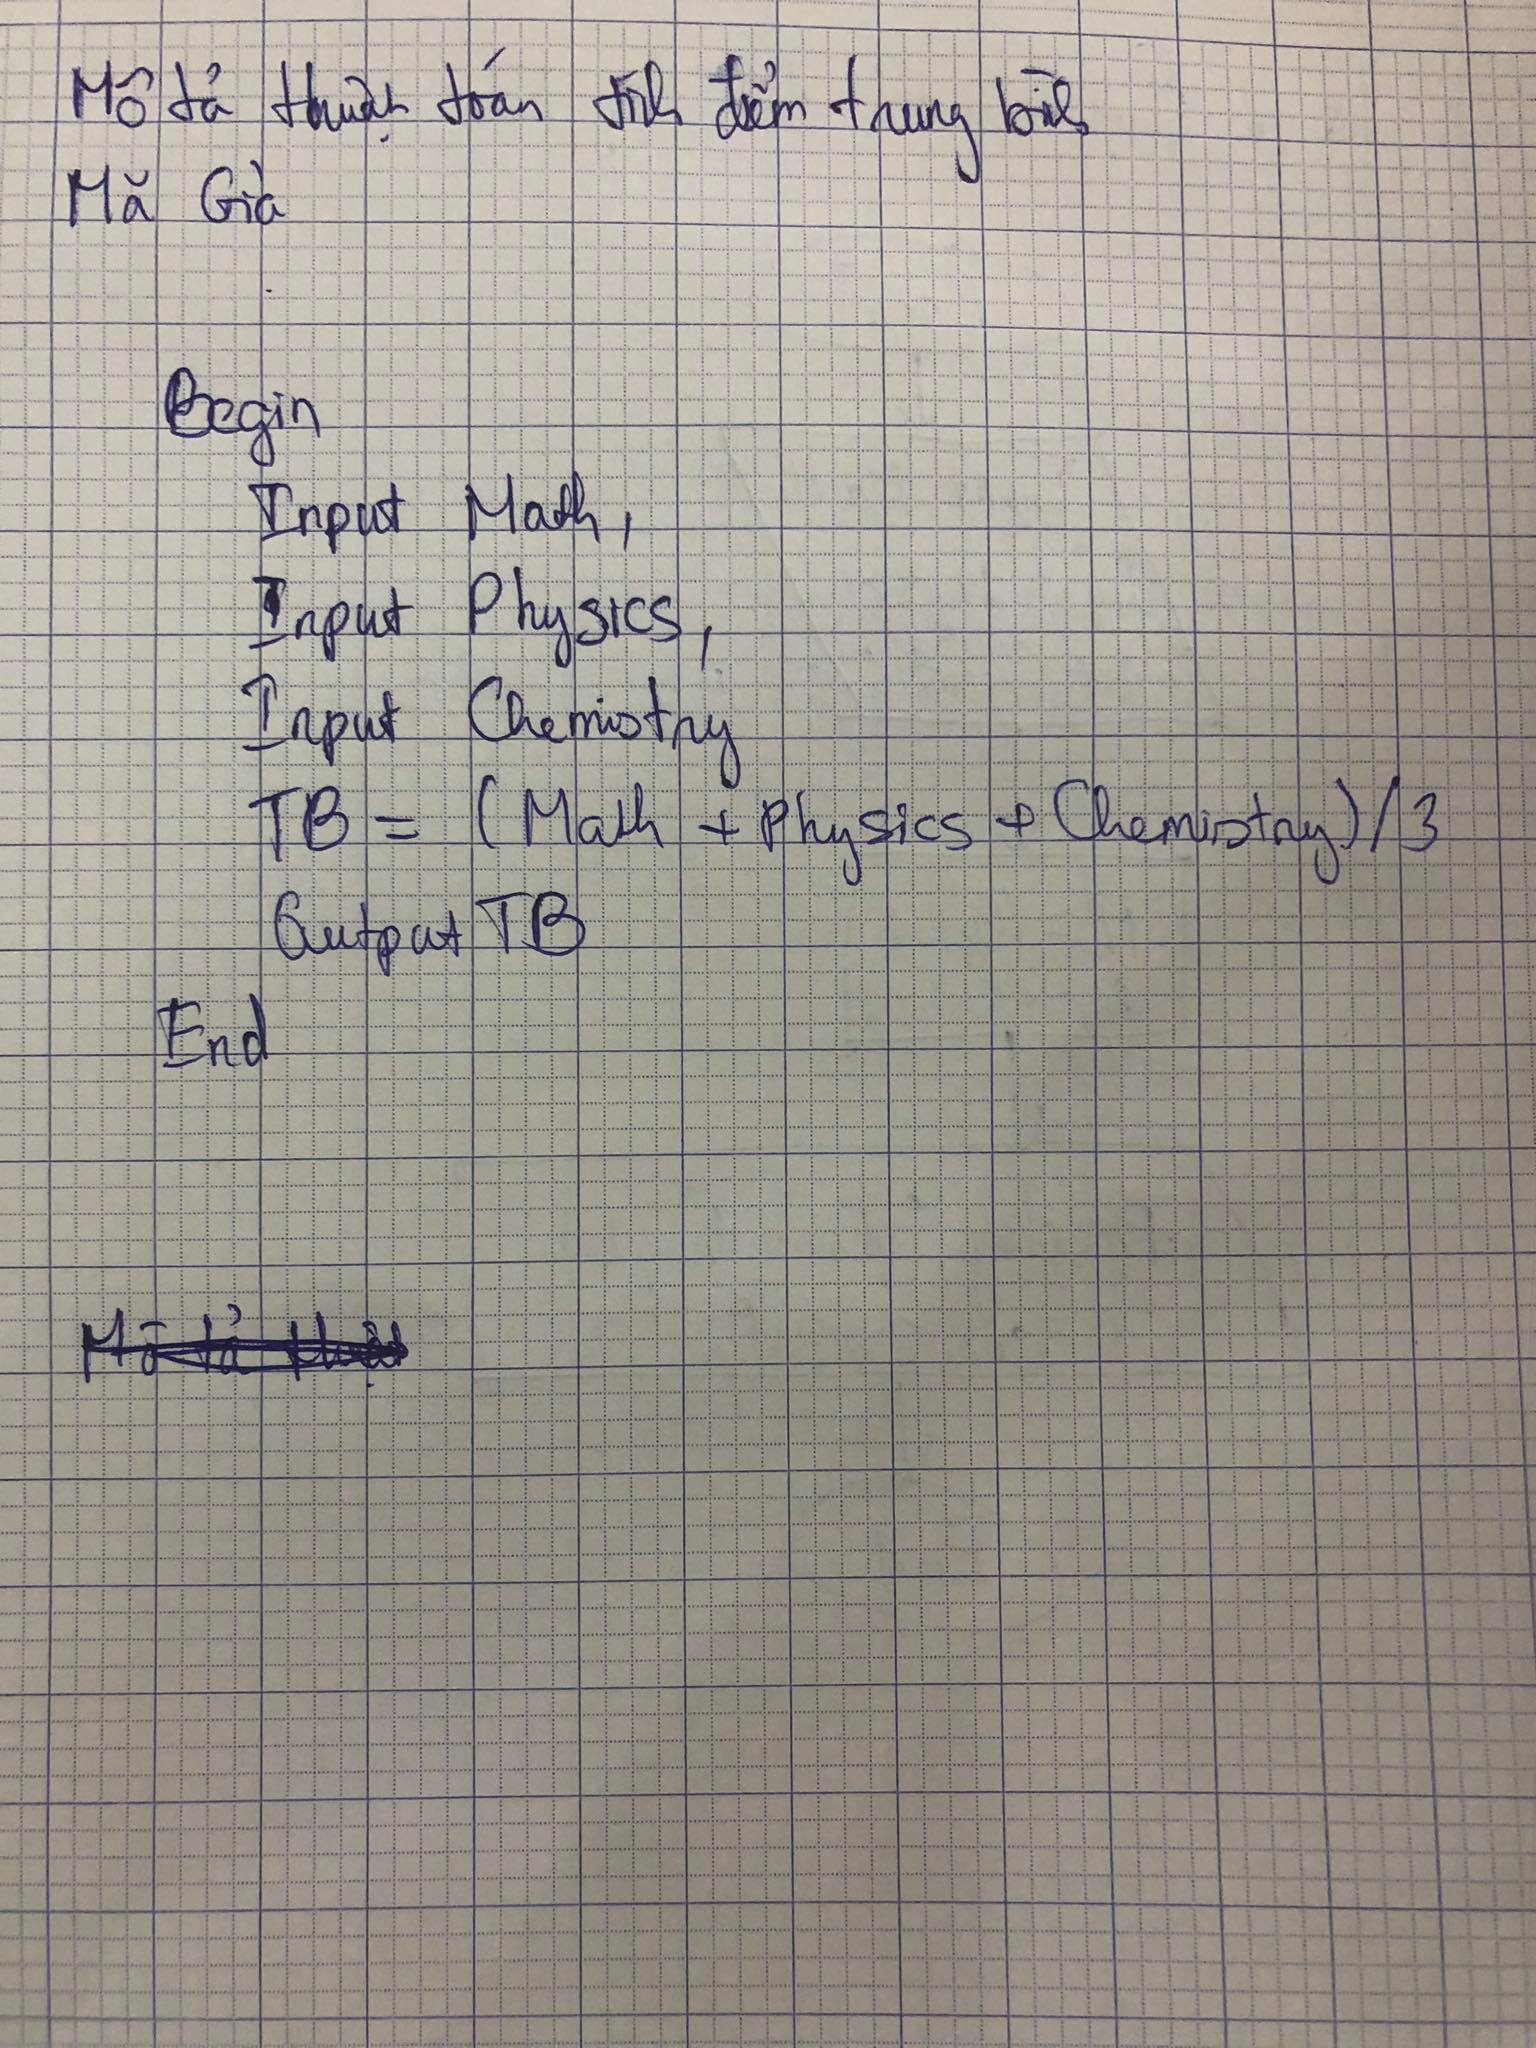 Mô tả thuật toán tính điểm trung bình
Mã Giả
Begin
Input Math,
Input Physics,
Input Chemistry
TB = (Math + Physics + Chemistry) / 3
Output TB
End
Mô tả thuật